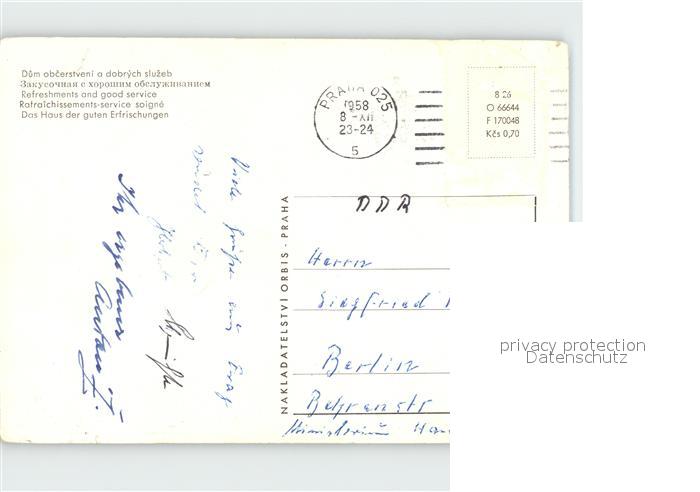 Dům občerstvení a dobrých služeb
Закусочная с хорошим обслуживанием
Refreshments and good service
Rafraîchissements-service soigné
Das Haus der guten Erfrischungen
PRAHA 025
1958
8 -XII
23-24
5
8 26
O 66644
F 170048
Kčs 0,70
Viele Grüße aus Prag
sendet
Ihr
NAKLADATELSTVÍ ORBIS · PRAHA
DDR
Herrn
Siegfried
Berlin
Behrenstr
Ministerium
privacy protection
Datenschutz